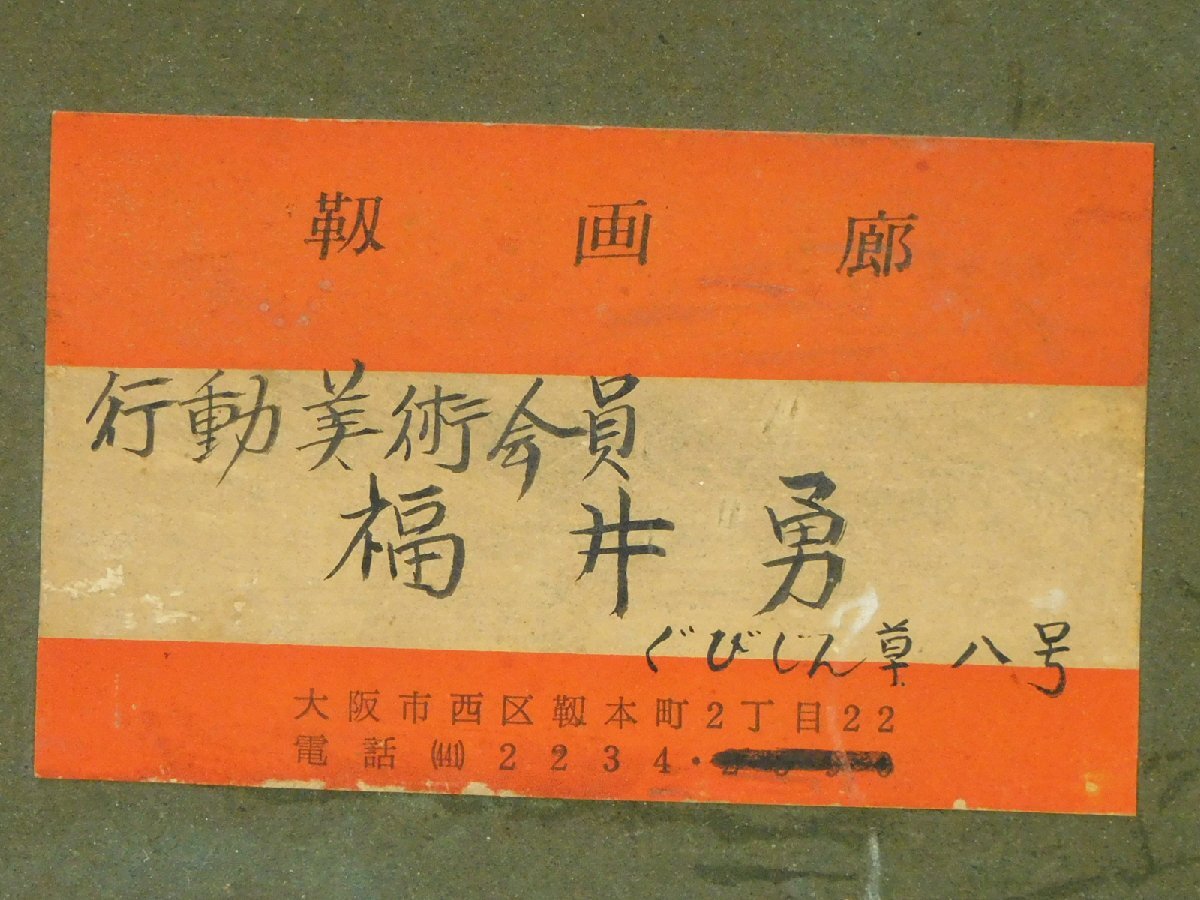 靱画廊
行動美術会員
福井勇
ぐびじん草 八号
大阪市西区靱本町2丁目22
電話 (441) 2234・